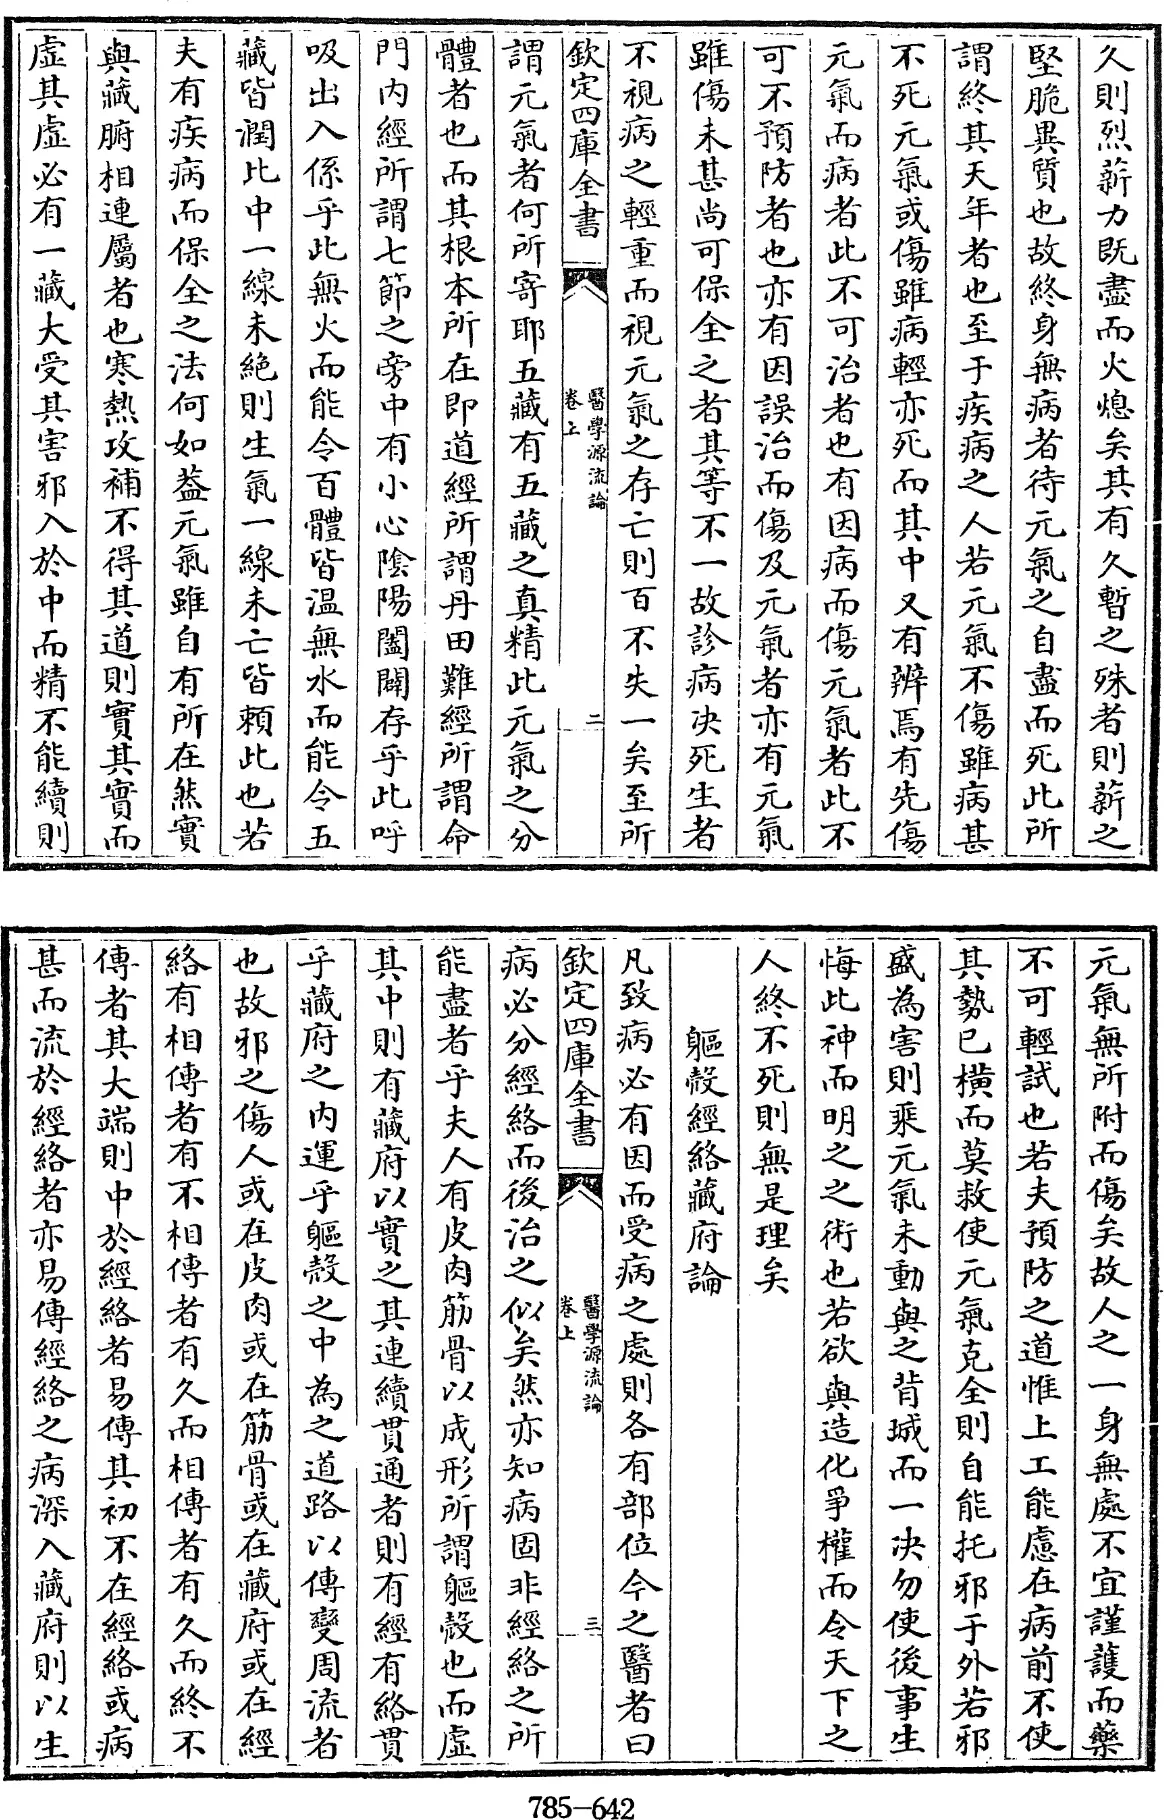 久則烈薪力既盡而火熄矣其有久暫之殊者則薪之
堅脆異質也故終身無病者待元氣之自盡而死此所
謂終其天年者也至于疾病之人若元氣不傷雖病甚
不死元氣或傷雖病輕亦死而其中又有辨焉有先傷
元氣而病者此不可治者也有因病而傷元氣者此不
可不預防者也亦有因誤治而傷及元氣者亦有元氣
雖傷未甚尚可保全之者其等不一故診病决死生者
不視病之輕重而視元氣之存亡則百不失一矣至所
欽定四庫全書
醫學源流論
卷上
二
謂元氣者何所寄耶五藏有五藏之真精此元氣之分
體者也而其根本所在即道經所謂丹田難經所謂命
門內經所謂七節之旁中有小心陰陽闔闢存乎此呼
吸出入係乎此無火而能令百體皆温無水而能令五
藏皆潤此中一線未絶則生氣一線未亡皆頼此也若
夫有疾病而保全之法何如葢元氣雖自有所在然實
與藏腑相連屬者也寒熱攻補不得其道則實其實而
虛其虛必有一藏大受其害邪入於中而精不能續則
元氣無所附而傷矣故人之一身無處不宜謹護而藥
不可輕試也若夫預防之道惟上工能慮在病前不使
其勢已横而莫救使元氣克全則自能托邪于外若邪
盛為害則乘元氣未動與之背城而一决勿使後事生
悔此神而明之之術也若欲與造化爭權而令天下之
人終不死則無是理矣
軀殼經絡藏府論
凡致病必有因而受病之處則各有部位今之醫者曰
欽定四庫全書
醫學源流論
卷上
三
病必分經絡而後治之似矣然亦知病固非經絡之所
能盡者乎夫人有皮肉筋骨以成形所謂軀殼也而虛
其中則有藏府以實之其連續貫通者則有經有絡貫
乎藏府之內運乎軀殼之中為之道路以傳變周流者
也故邪之傷人或在皮肉或在筋骨或在藏府或在經
絡有相傳者有不相傳者有久而相傳者有久而終不
傳者其大端則中於經絡者易傳其初不在經絡或病
甚而流於經絡者亦易傳經絡之病深入藏府則以生
785-642